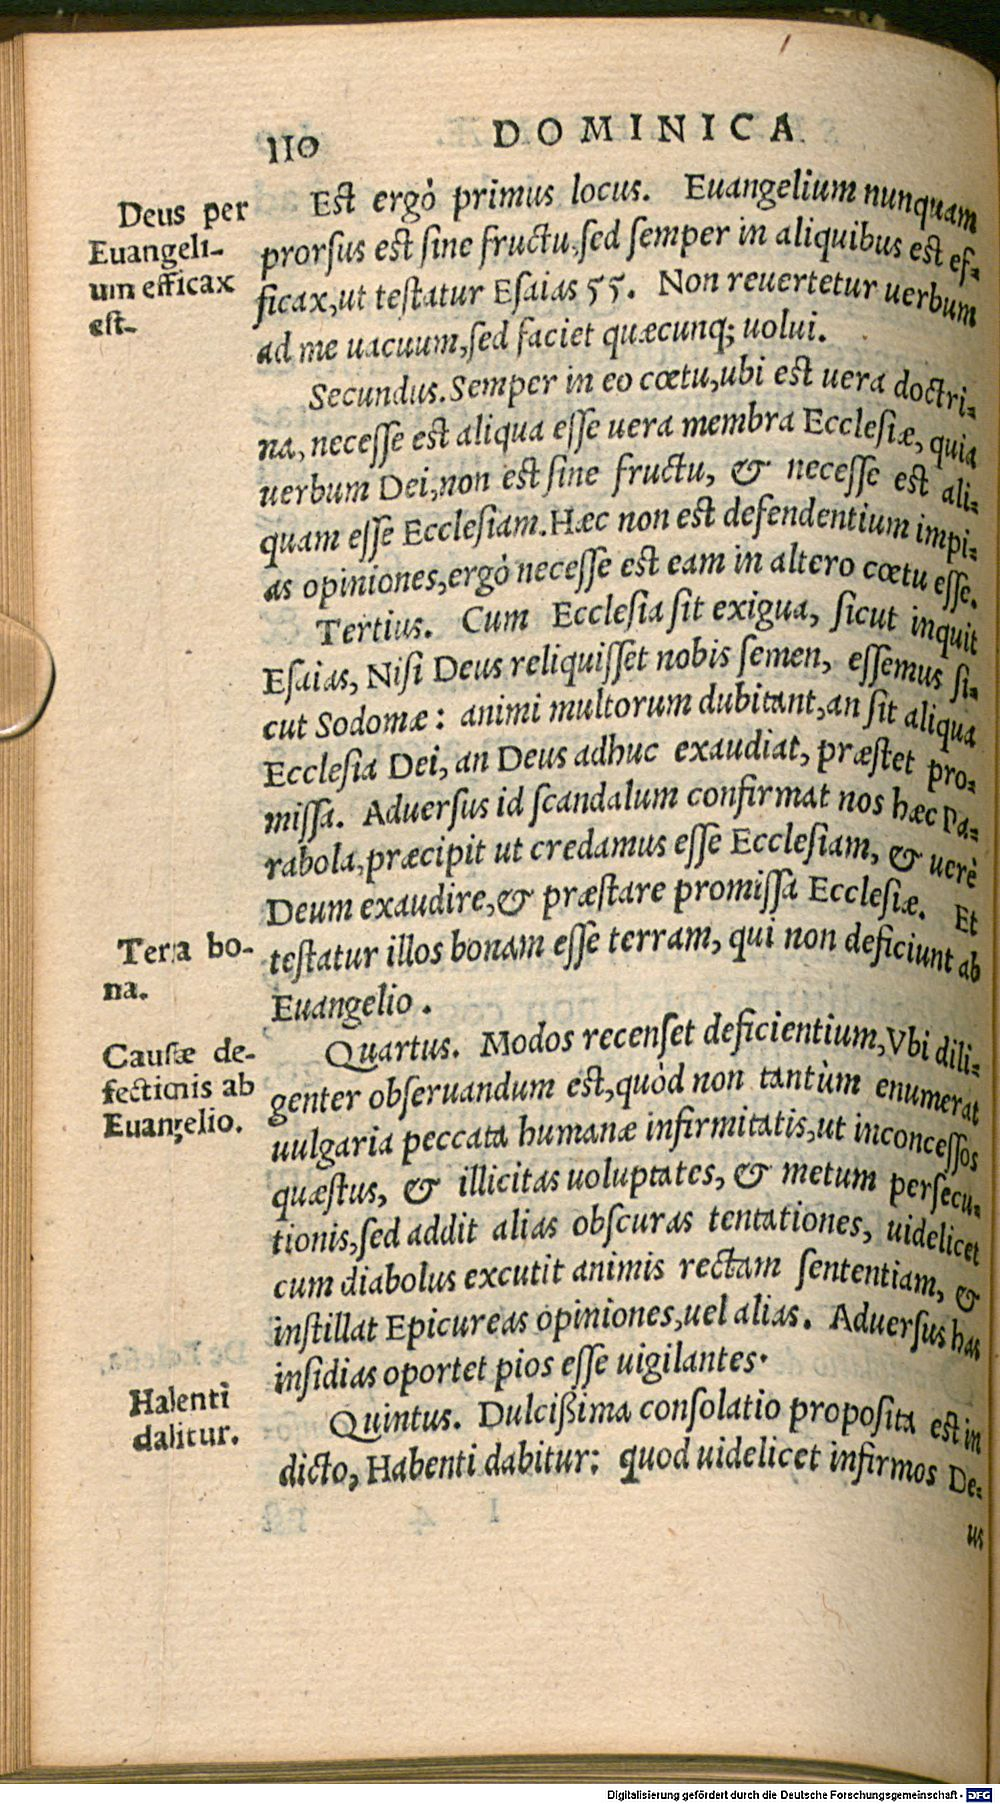 110 DOMINICA
Deus per
Euangeli-
um efficax
est.
Est ergò primus locus. Euangelium nunquam
prorſus est ſine fructu, ſed ſemper in aliquibus est ef-
ficax, ut teſtatur Eſaias 55. Non reuertetur uerbum
ad me uacuum, ſed faciet quæcunq; uolui.
Secundus. Semper in eo cœtu, ubi est uera doctri-
na, neceſſe est aliqua eſſe uera membra Eccleſiæ, quia
uerbum Dei, non est ſine fructu, & neceſſe est ali-
quam eſſe Eccleſiam. Hæc non est defendentium impi-
as opiniones, ergò neceſſe est eam in altero cœtu eſſe.
Tertius. Cum Eccleſia ſit exigua, ſicut inquit
Eſaias, Niſi Deus reliquiſſet nobis ſemen, eſſemus ſi-
cut Sodomæ: animi multorum dubitant, an ſit aliqua
Eccleſia Dei, an Deus adhuc exaudiat, præſtet pro-
miſſa. Aduerſus id ſcandalum confirmat nos hæc Pa-
rabola, præcipit ut credamus eſſe Eccleſiam, & uerè
Deum exaudire, & præſtare promiſſa Eccleſiæ. Et
teſtatur illos bonam eſſe terram, qui non deficiunt ab
Euangelio.
Terra bo-
na.
Cauſæ de-
fectionis ab
Euangelio.
Quartus. Modos recenſet deficientium, Vbi dili-
genter obſeruandum est, quòd non tantùm enumerat
uulgaria peccata humanæ infirmitatis, ut inconceſſos
quæſtus, & illicitas uoluptates, & metum perſecu-
tionis, ſed addit alias obſcuras tentationes, uidelicet
cum diabolus excutit animis rectam ſententiam, &
inſtillat Epicureas opiniones, uel alias. Aduerſus has
inſidias oportet pios eſſe uigilantes.
Habenti
dabitur.
Quintus. Dulcißima conſolatio propoſita est in
dicto, Habenti dabitur: quod uidelicet infirmos De-
us
Digitalisierung gefördert durch die Deutsche Forschungsgemeinschaft - DFG